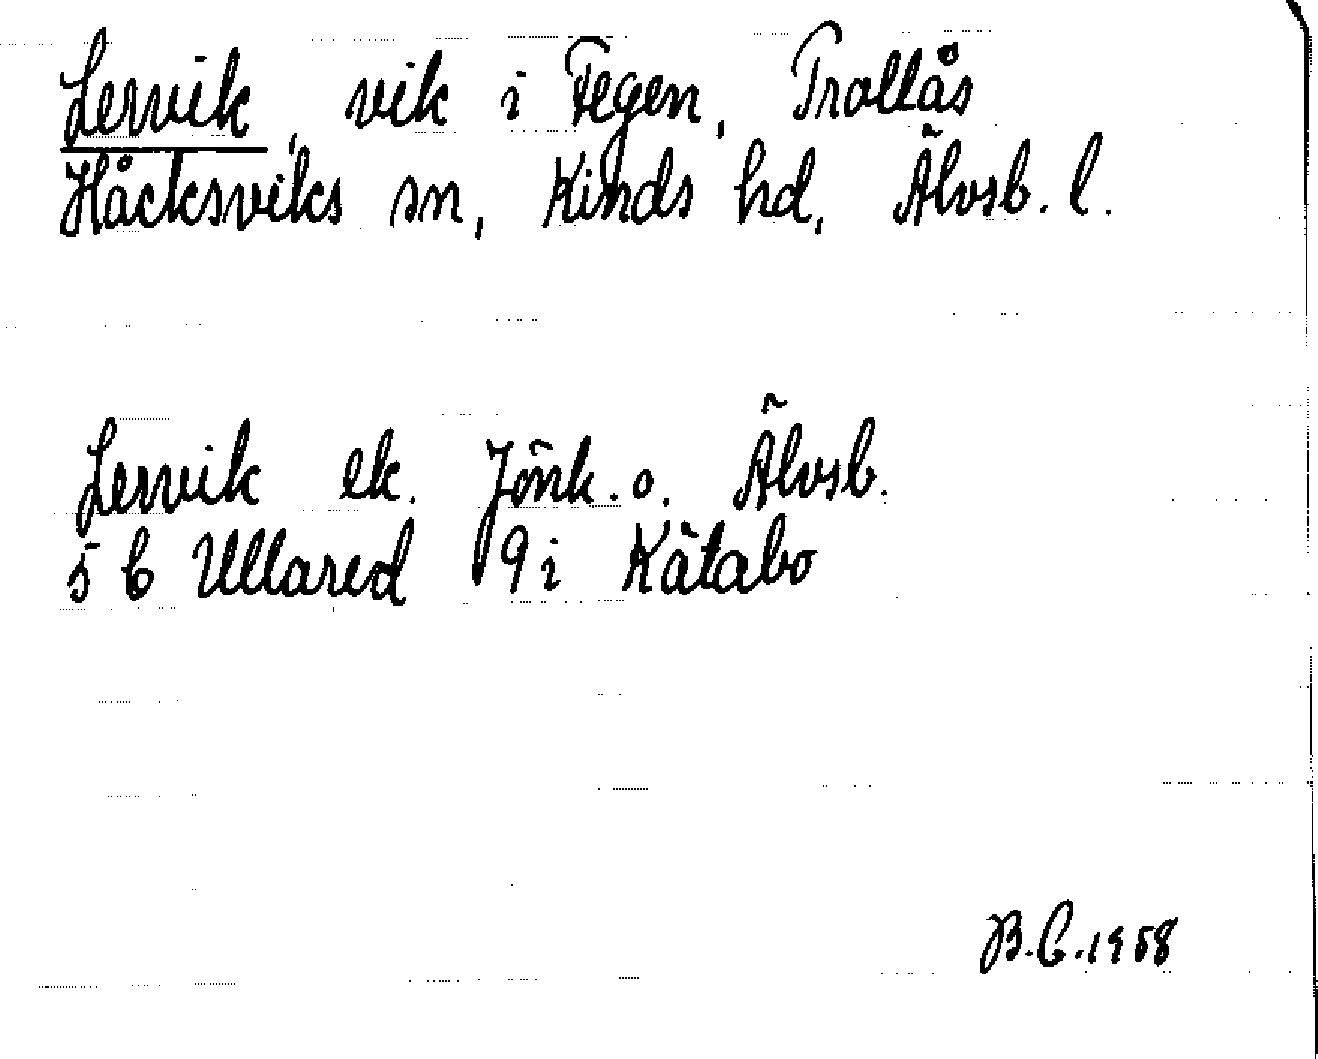 Lervik, vik i Fegen, Trollås
Håcksviks sn, Kinds hd, Älvsb. l.
Lervik ek. Jönk. o. Älvsb.
5 C Ullared 9 i Kätabo
B.C. 1958